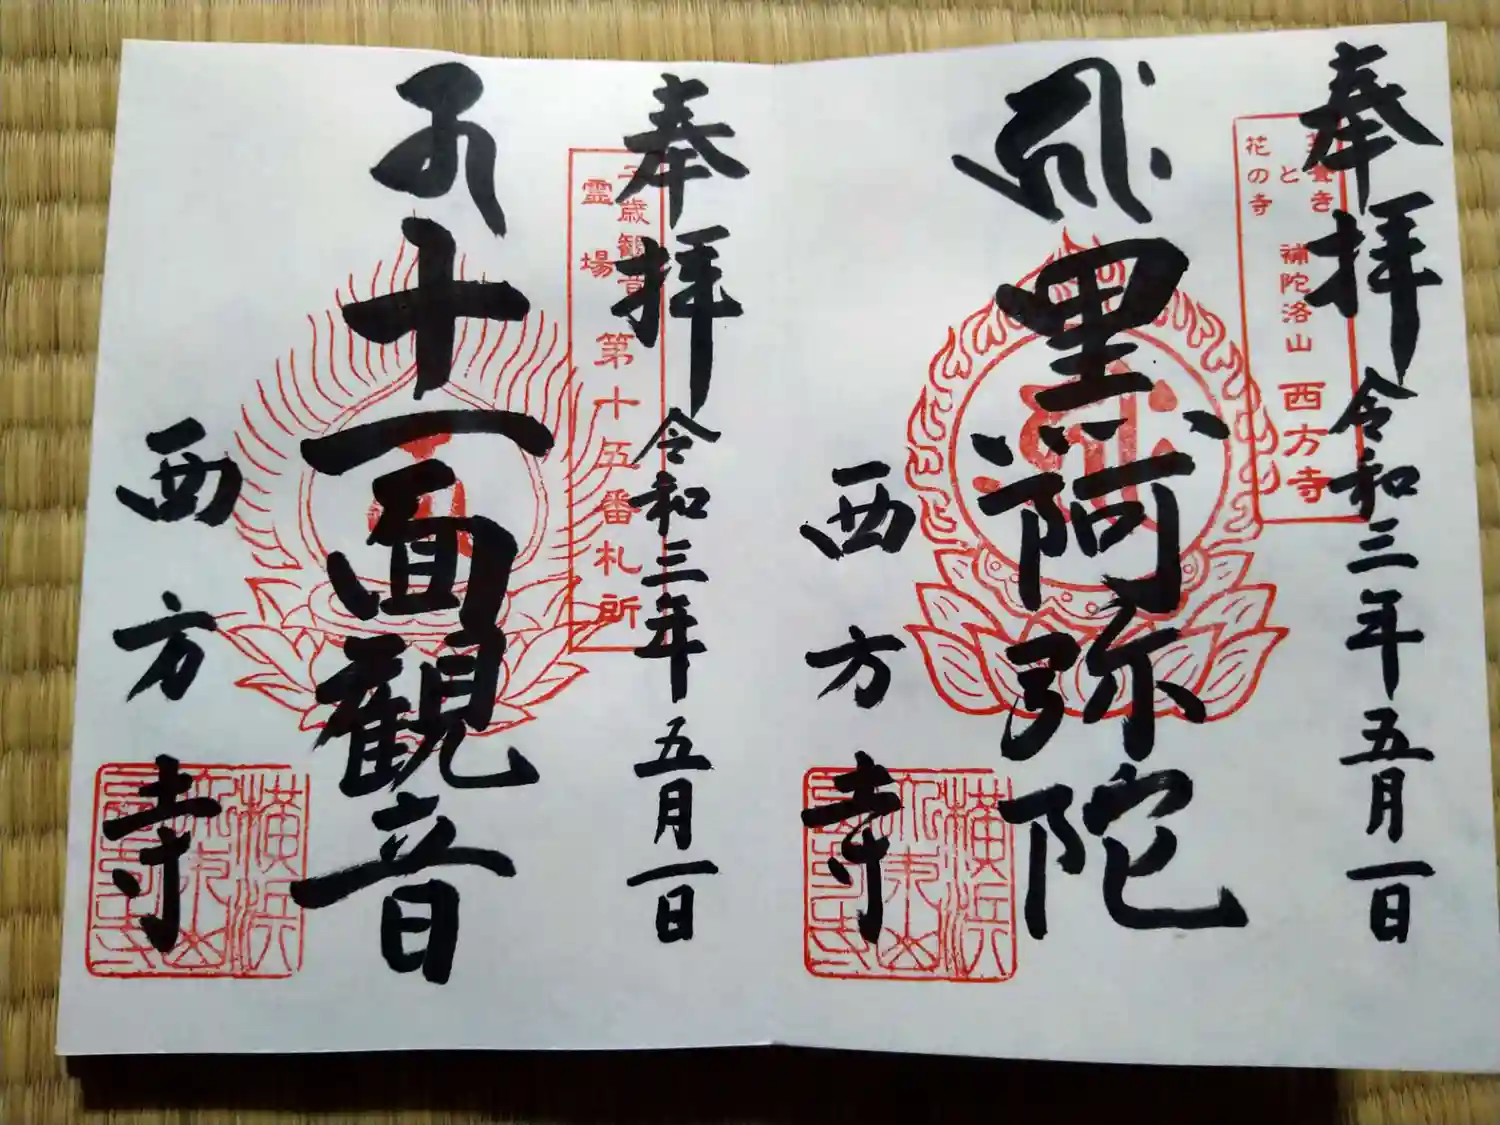 奉拝
令和三年五月一日
茅葺きと花の寺
補陀洛山 西方寺
黒阿弥陀
西方寺
奉拝
令和三年五月一日
子歳観音霊場
第十五番札所
十一面観音
西方寺